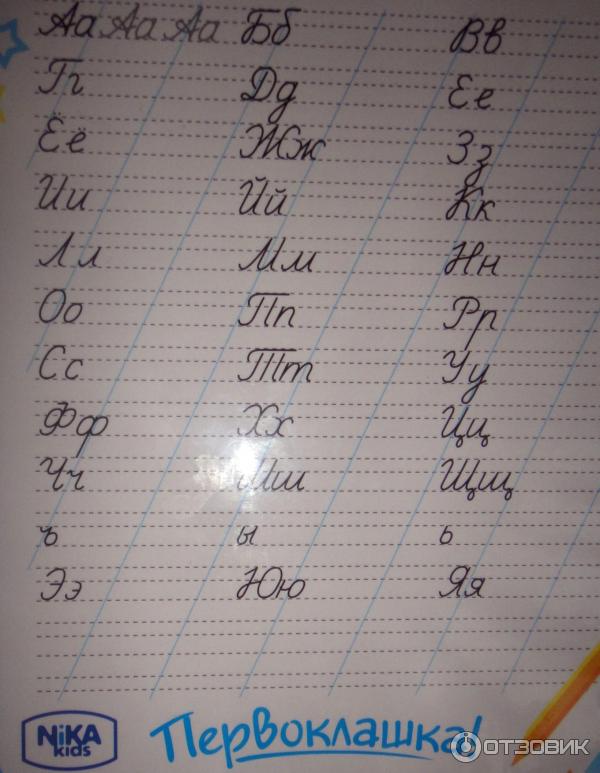 Аа Аа Аа Бб Вв
Гг Дд Ее
Ёё Жж Зз
Ии Йй Кк
Лл Мм Нн
Оо Пп Рр
Сс Тт Уу
Фф Хх Цц
Чч Шш Щщ
ъ ы ь
Ээ Юю Яя
NiKA
kids
Первоклашка!
ОТЗОВИК